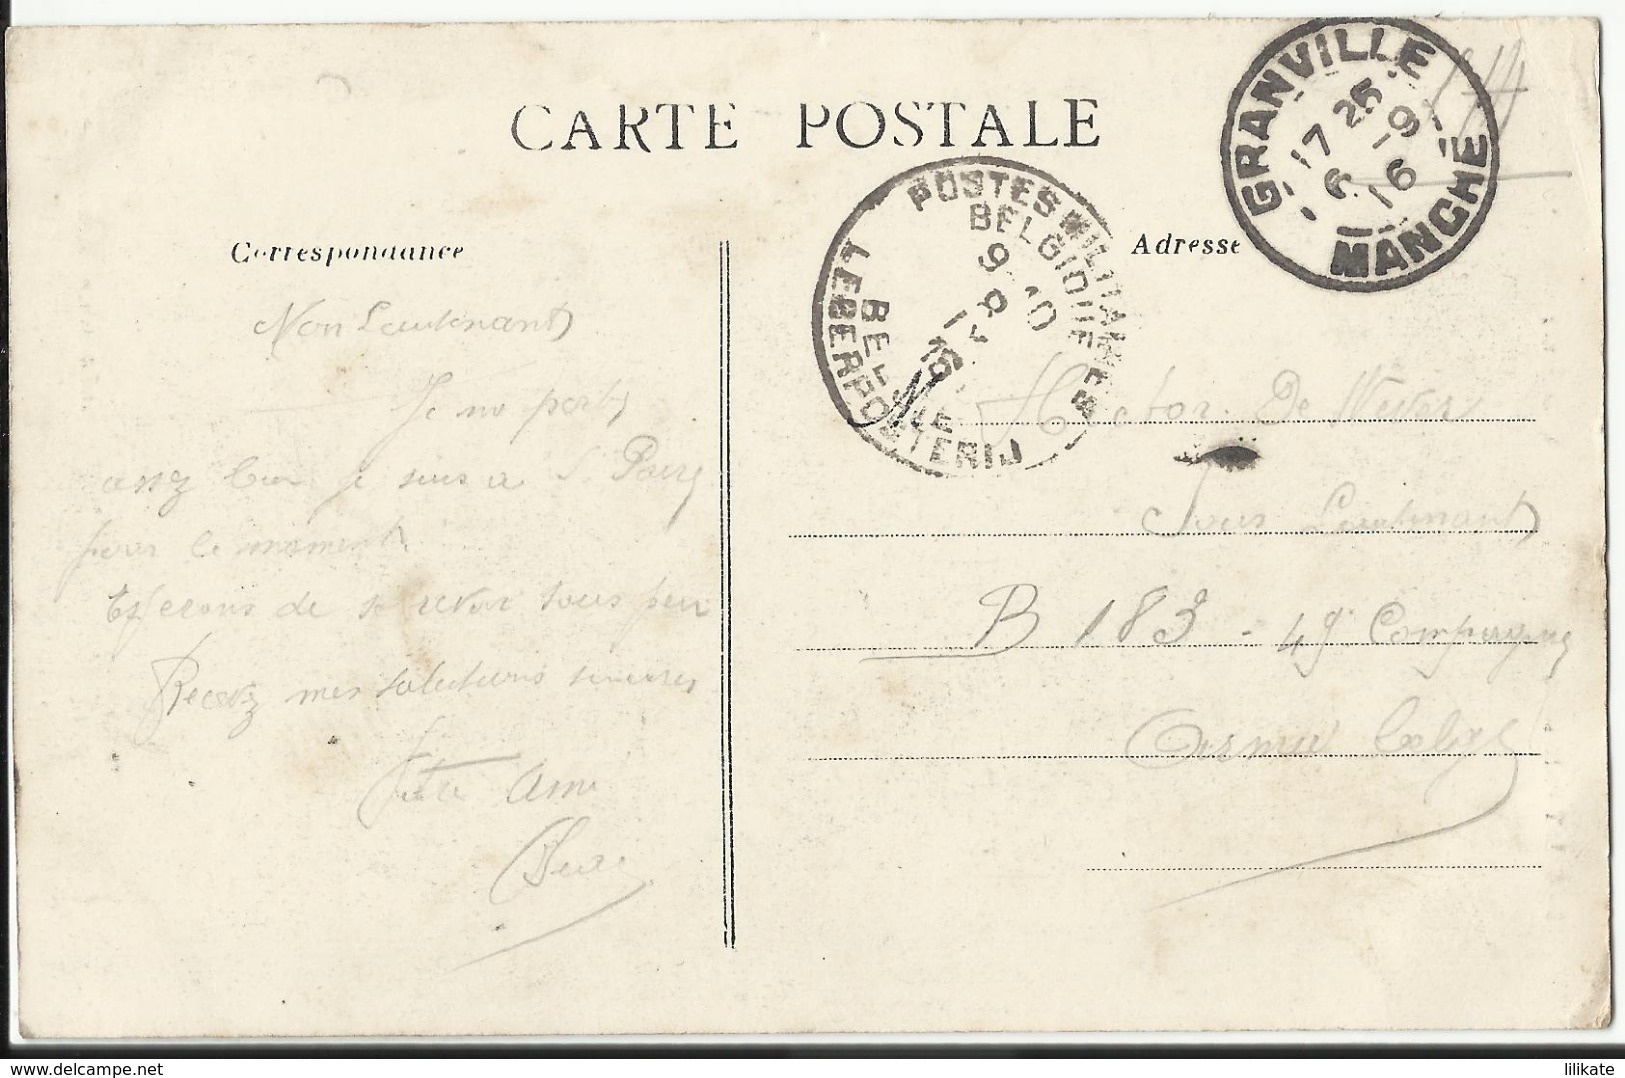 CARTE POSTALE
GRANVILLE
17 25
6 -9
16
MANCHE
POSTES MILITAIRES
BELGIQUE
9 10
16
BELGIE
LEBERPOSTERIJ
Correspondance
Adresse
Mon Lieutenant
Je me porte
assez bien je suis a
pour le moment
Esperons de se revoir sous peu
Recevez mes salutations sinceres
Votre Ami
Hector De Wever
Sous Lieutenant
B 183 - 49 Compagnie
Armée belge
lilikate